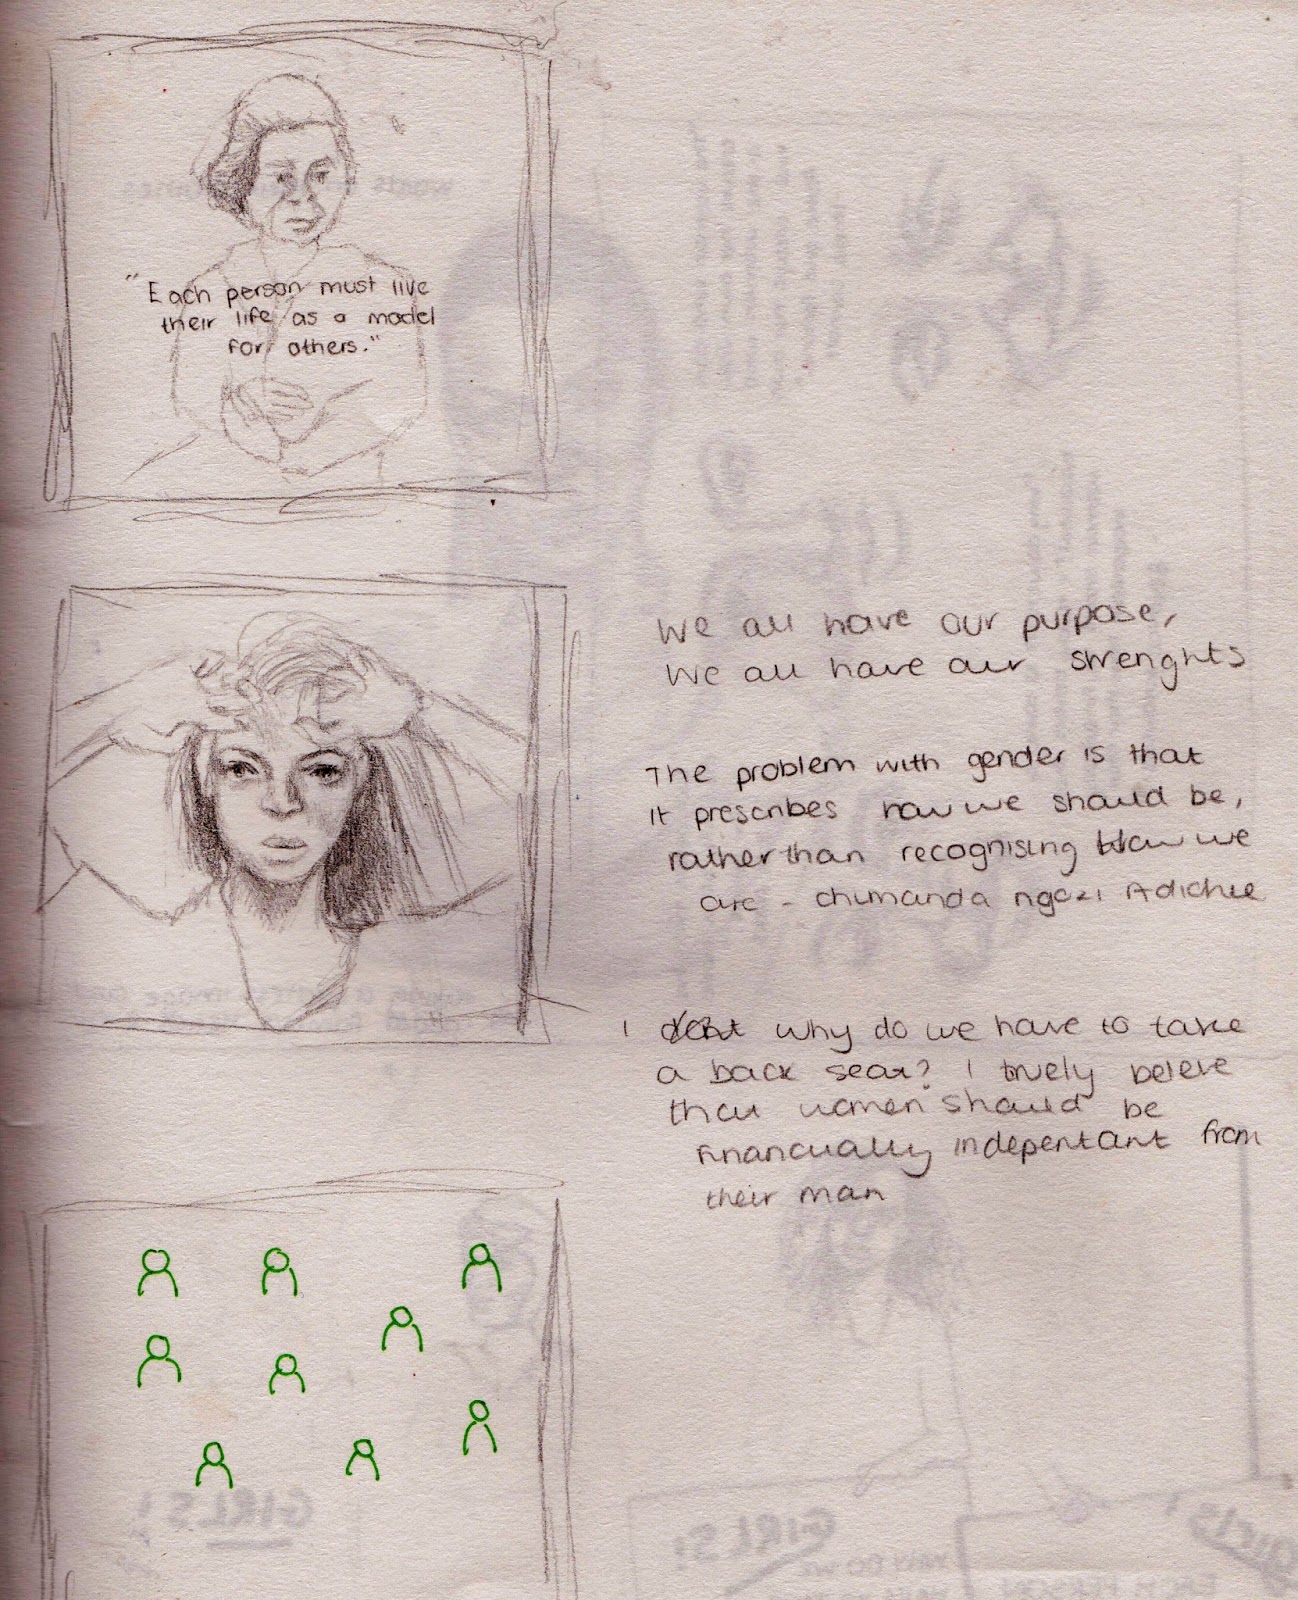 "Each person must live
their life as a model
for others."
We all have our purpose,
We all have our strenghts
The problem with gender is that
it prescribes how we should be,
rather than recognising How we
are - chimanda ngozi Adichie
I why do we have to take
a back seat? I truely beleve
that women should be
Financually indepentant from
their man
GIRLS!
GIRLS!
WHY DO WE
GIRLS!
EACH PERSON